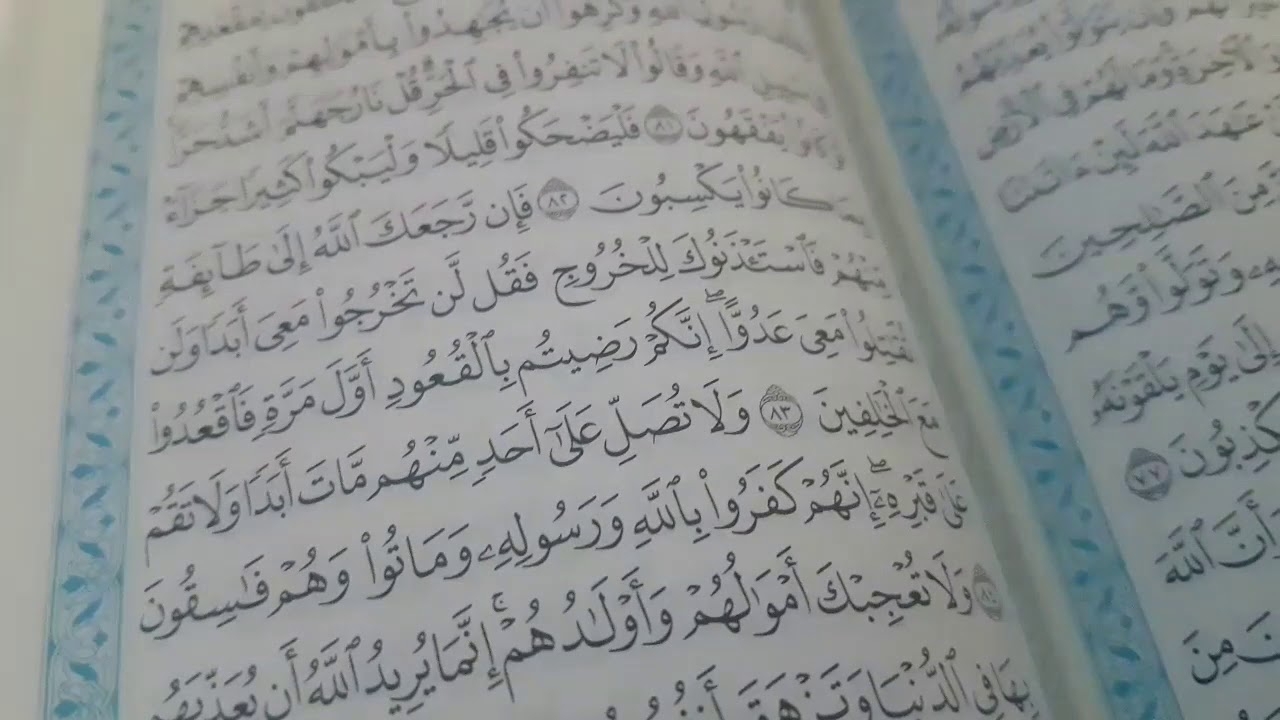 وَٱلْأَخِرَةِ وَمَا لَهُمْ فِى ٱلْأَرْضِ
عَٰهَدَ ٱللَّهَ لَئِنْ ءَاتَىٰنَا
مِنَ ٱلصَّٰلِحِينَ
وَتَوَلَّوا۟ وَّهُم
إِلَىٰ يَوْمِ يَلْقَوْنَهُۥ
كْذِبُونَ ٧٧
أَنَّ ٱللَّهَ
مِنَ
وَكَرِهُوٓا۟ أَن يُجَٰهِدُوا۟ بِأَمْوَٰلِهِمْ وَأَنفُسِهِمْ
ٱللَّهِ وَقَالُوا۟ لَا تَنفِرُوا۟ فِى ٱلْحَرِّ ۗ قُلْ نَارُ جَهَنَّمَ أَشَدُّ حَرًّا
كَانُوا۟ يَفْقَهُونَ ٨١ فَلْيَضْحَكُوا۟ قَلِيلًا وَلْيَبْكُوا۟ كَثِيرًا جَزَآءًۢ
كَانُوا۟ يَكْسِبُونَ ٨٢ فَإِن رَّجَعَكَ ٱللَّهُ إِلَىٰ طَآئِفَةٍ
مِّنْهُمْ فَٱسْتَـْٔذَنُوكَ لِلْخُرُوجِ فَقُل لَّن تَخْرُجُوا۟ مَعِىَ أَبَدًا وَلَن
تُقَٰتِلُوا۟ مَعِىَ عَدُوًّا ۖ إِنَّكُمْ رَضِيتُم بِٱلْقُعُودِ أَوَّلَ مَرَّةٍ فَٱقْعُدُوا۟
مَعَ ٱلْخَٰلِفِينَ ٨٣ وَلَا تُصَلِّ عَلَىٰٓ أَحَدٍ مِّنْهُم مَّاتَ أَبَدًا وَلَا تَقُمْ
عَلَىٰ قَبْرِهِۦٓ ۖ إِنَّهُمْ كَفَرُوا۟ بِٱللَّهِ وَرَسُولِهِۦ وَمَاتُوا۟ وَهُمْ فَٰسِقُونَ
٨٤ وَلَا تُعْجِبْكَ أَمْوَٰلُهُمْ وَأَوْلَٰدُهُمْ ۚ إِنَّمَا يُرِيدُ ٱللَّهُ أَن يُعَذِّبَهُم
بِهَا فِى ٱلدُّنْيَا وَتَزْهَقَ